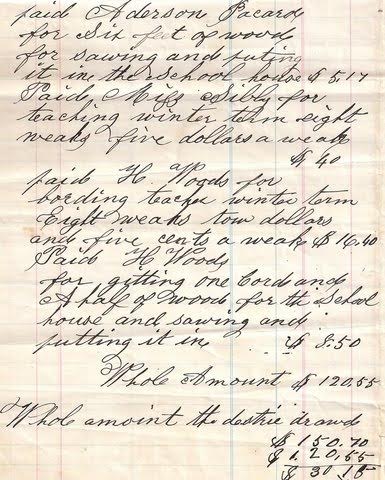 paid Aderson Pacard
for Six feet of wood
for sawing and puting
it in the School house $ 5.17
Paid Miss Sibly for
teaching winter term eight
weaks five dollars a weak
$ 40
paid H Woods for
bording teacher winter term
Eight weaks tow dollars
and five cents a weak $ 16.40
Paid H Woods
for gitting one Cord and
A half of wood for the School
house and sawing and
putting it in $ 8.50
Whole Amount $ 120,55
Whole amoint the destric drawd
$ 150.70
$ 120,55
$ 30 15